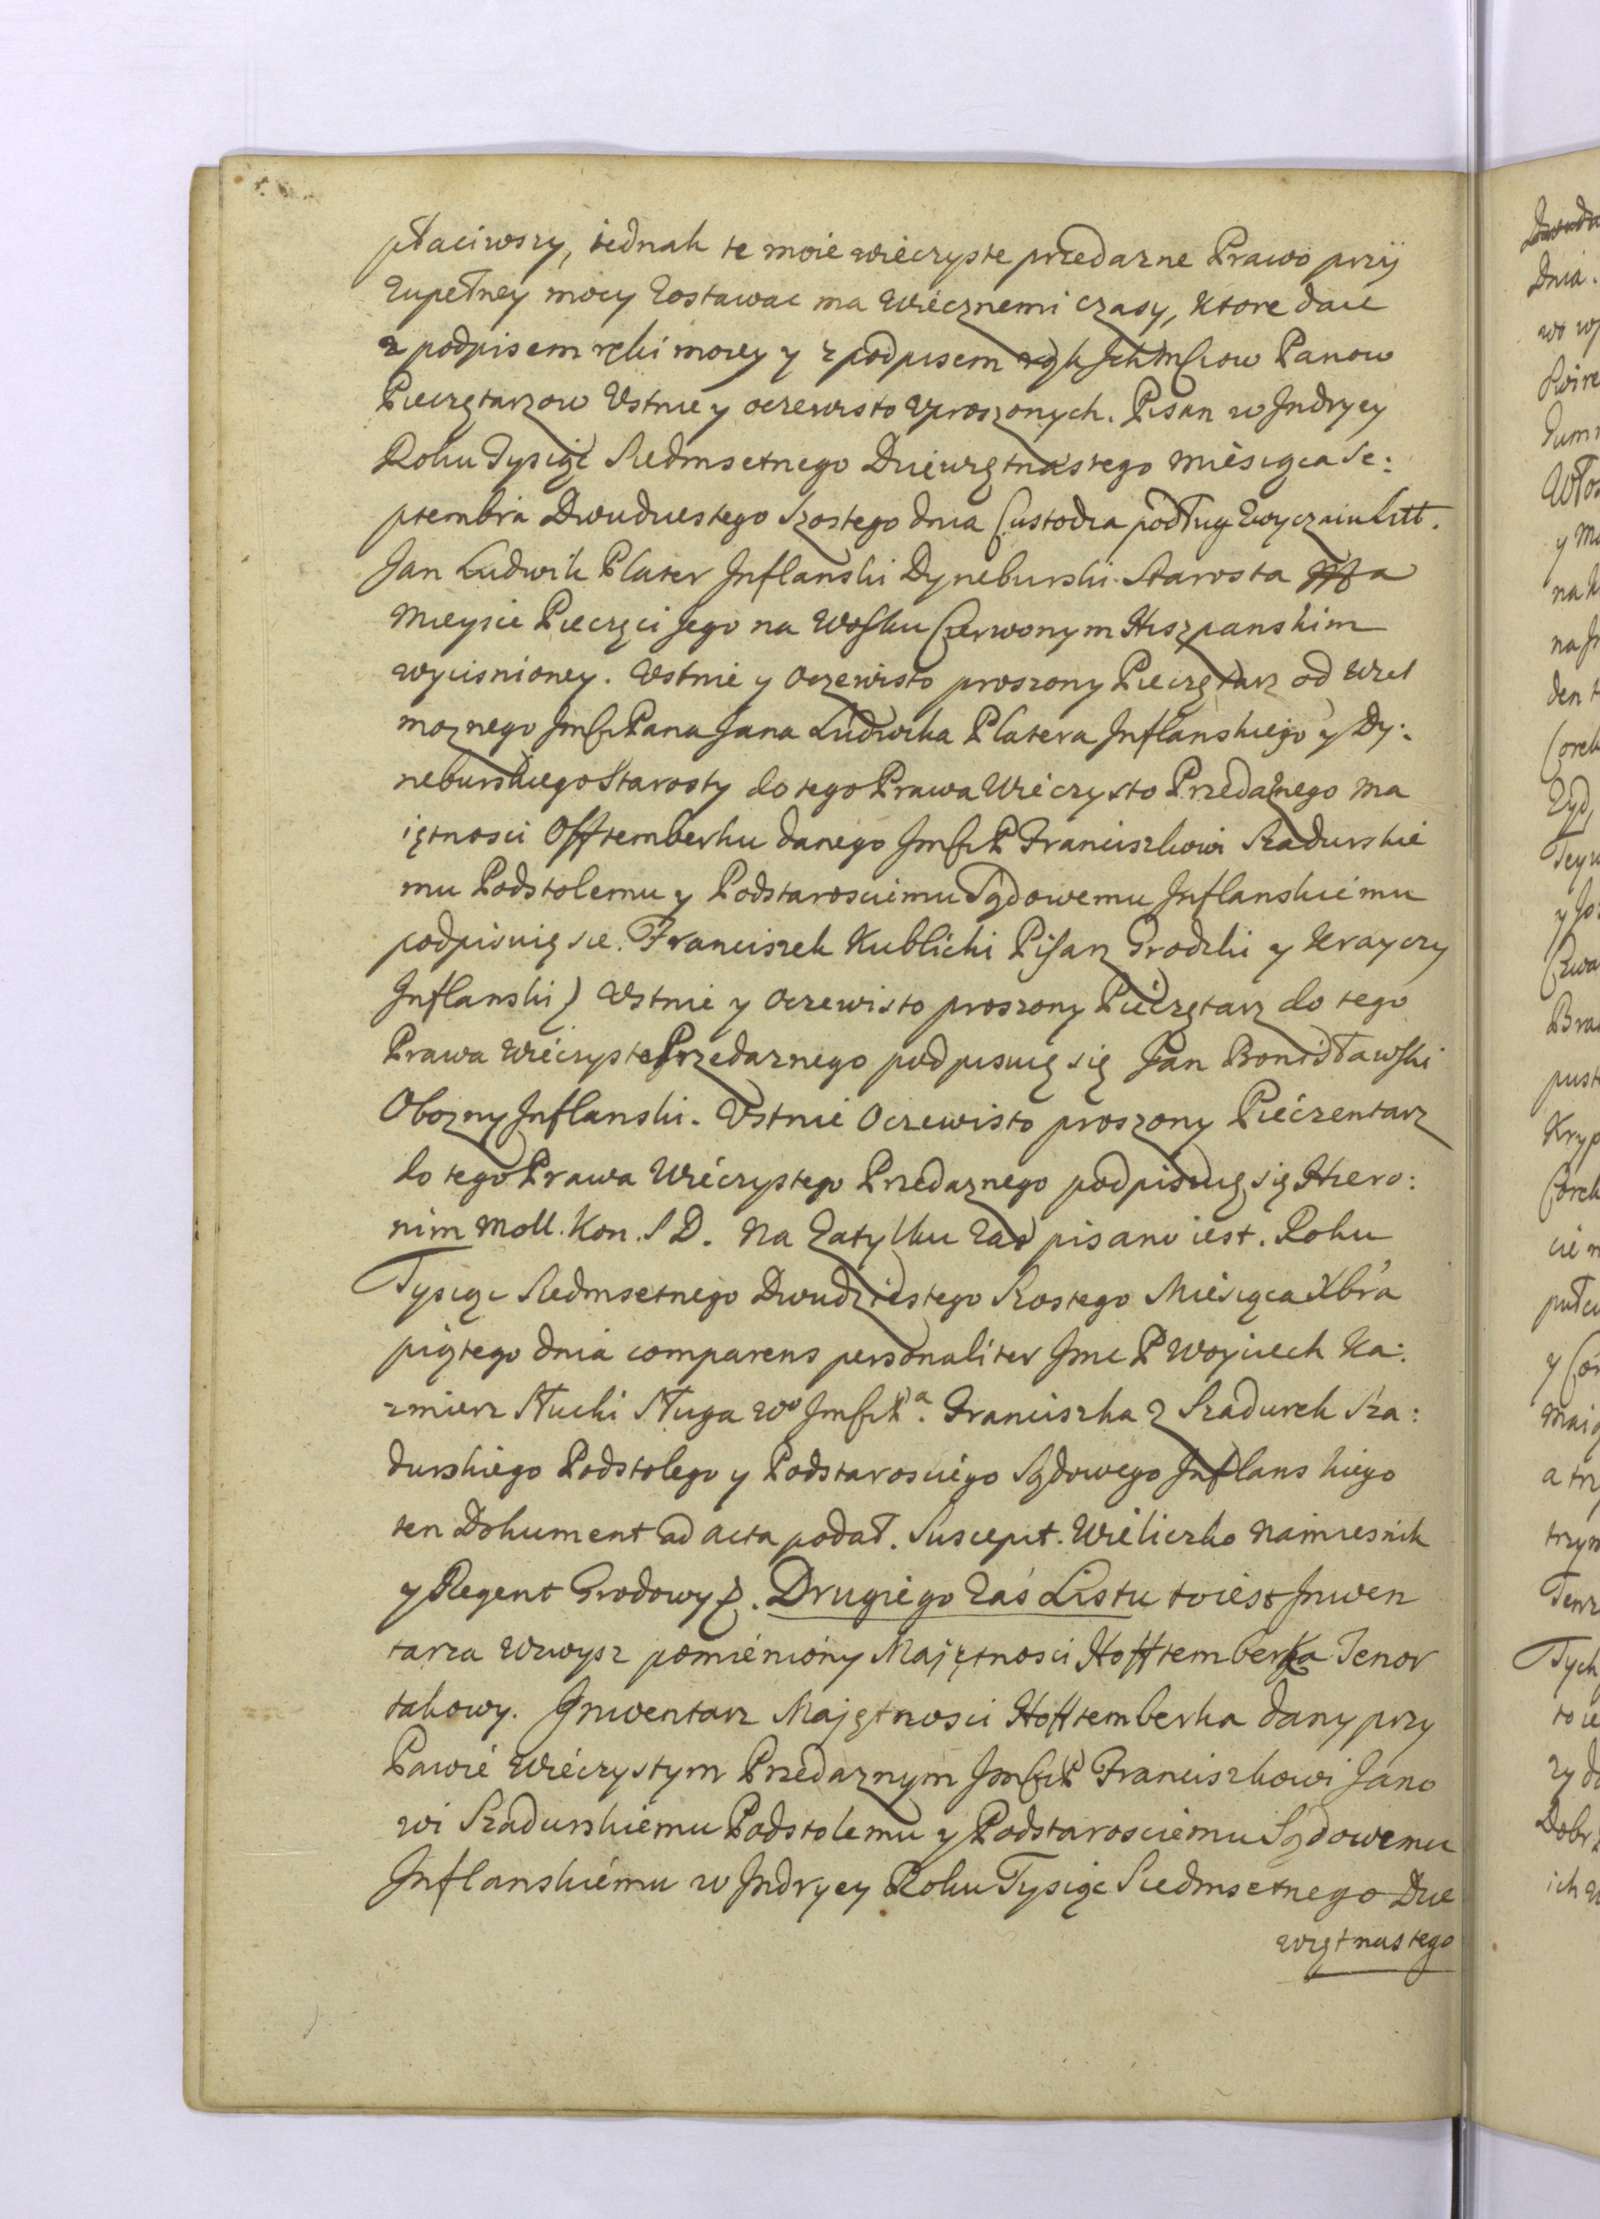 płaciwszy, iednak te moie wieczyste przedazne Prawo przÿ
Zupełney mocy Zostawac ma Wiecznemi czasy, Ktore daie
z podpisem ręki moiey y z podpisem rąk Ichmściow Panow
Pieczętarzow Ustnie y oczewisto Uproszonych. Pisan w Indrycy
Roku Tysiąc Siedmsetnego Dziewiętnastego Miesiąca Se:
ptembra Dwudziestego Szostego dnia Custodia podług Zwyczaiu Litt.
Jan Ludwik Plater Inflanski Dyneburski Starosta
Mieysce Pieczęci Jego na Wosku Czerwonym Hiszpanskim
wycisnioney. Ustnie y Oczewisto proszony Pieczętarz od Wiel
moznego Jmści Pana Jana Ludwika Platera Inflanskiego y Dy:
neburskiego Starosty do tego Prawa Wieczysto Przedaznego Ma
iętnosci Offtemberku danego Jmści P Franciszkowi Szadurskie
mu Podstolemu y Podstarosciemu Sądowemu Inflanskiemu
podpisuię sie. Franciszek Kublicki Pisarz Grodzki y Krayczy
Inflanski) Ustnie y Oczewisto proszony Pieczętarz do tego
Prawa Wieczysto Przedaznego podpisuię się Jan Bonisławski
Obozny Inflanski. Ustnie Oczewisto proszony Pieczentarz
do tego Prawa Wieczystego Przedaznego podpisuię się Hiero:
nim Moll. Kon. S D. Na Zatylku Zas pisano iest. Roku
Tysiąc Siedmsetnego Dwudziestego Szostego Miesiąca Xbra
piątego dnia comparens personaliter Jmc P Woyciech Ka:
zmierz Słucki Sługa Wo Jmści Pa. Franciszka z Szadurek Sza:
durskiego Podstolego y Podstarosciego Sądowego Inflans kiego
ten Dokument ad acta podał. Suscepit. Wieliczko Namiesnik
y Regent Grodowy. Drugiego Zaś Listu to iest Inwen
tarza Wzwysz pomieniony Maiętnosci Hofftemberka Tenor
takowy. Inwentarz Maiętnosci Hofftemberka dany przy
Pawie Wieczystym Przedaznym Jmści P Franciszkowi Jano
wi Szadurskiemu Podstolemu y Podstarosciemu Sądowemu
Inflanskiemu w Indrycy Roku Tysiąc Siedmsetnego Dzie
więtnastego